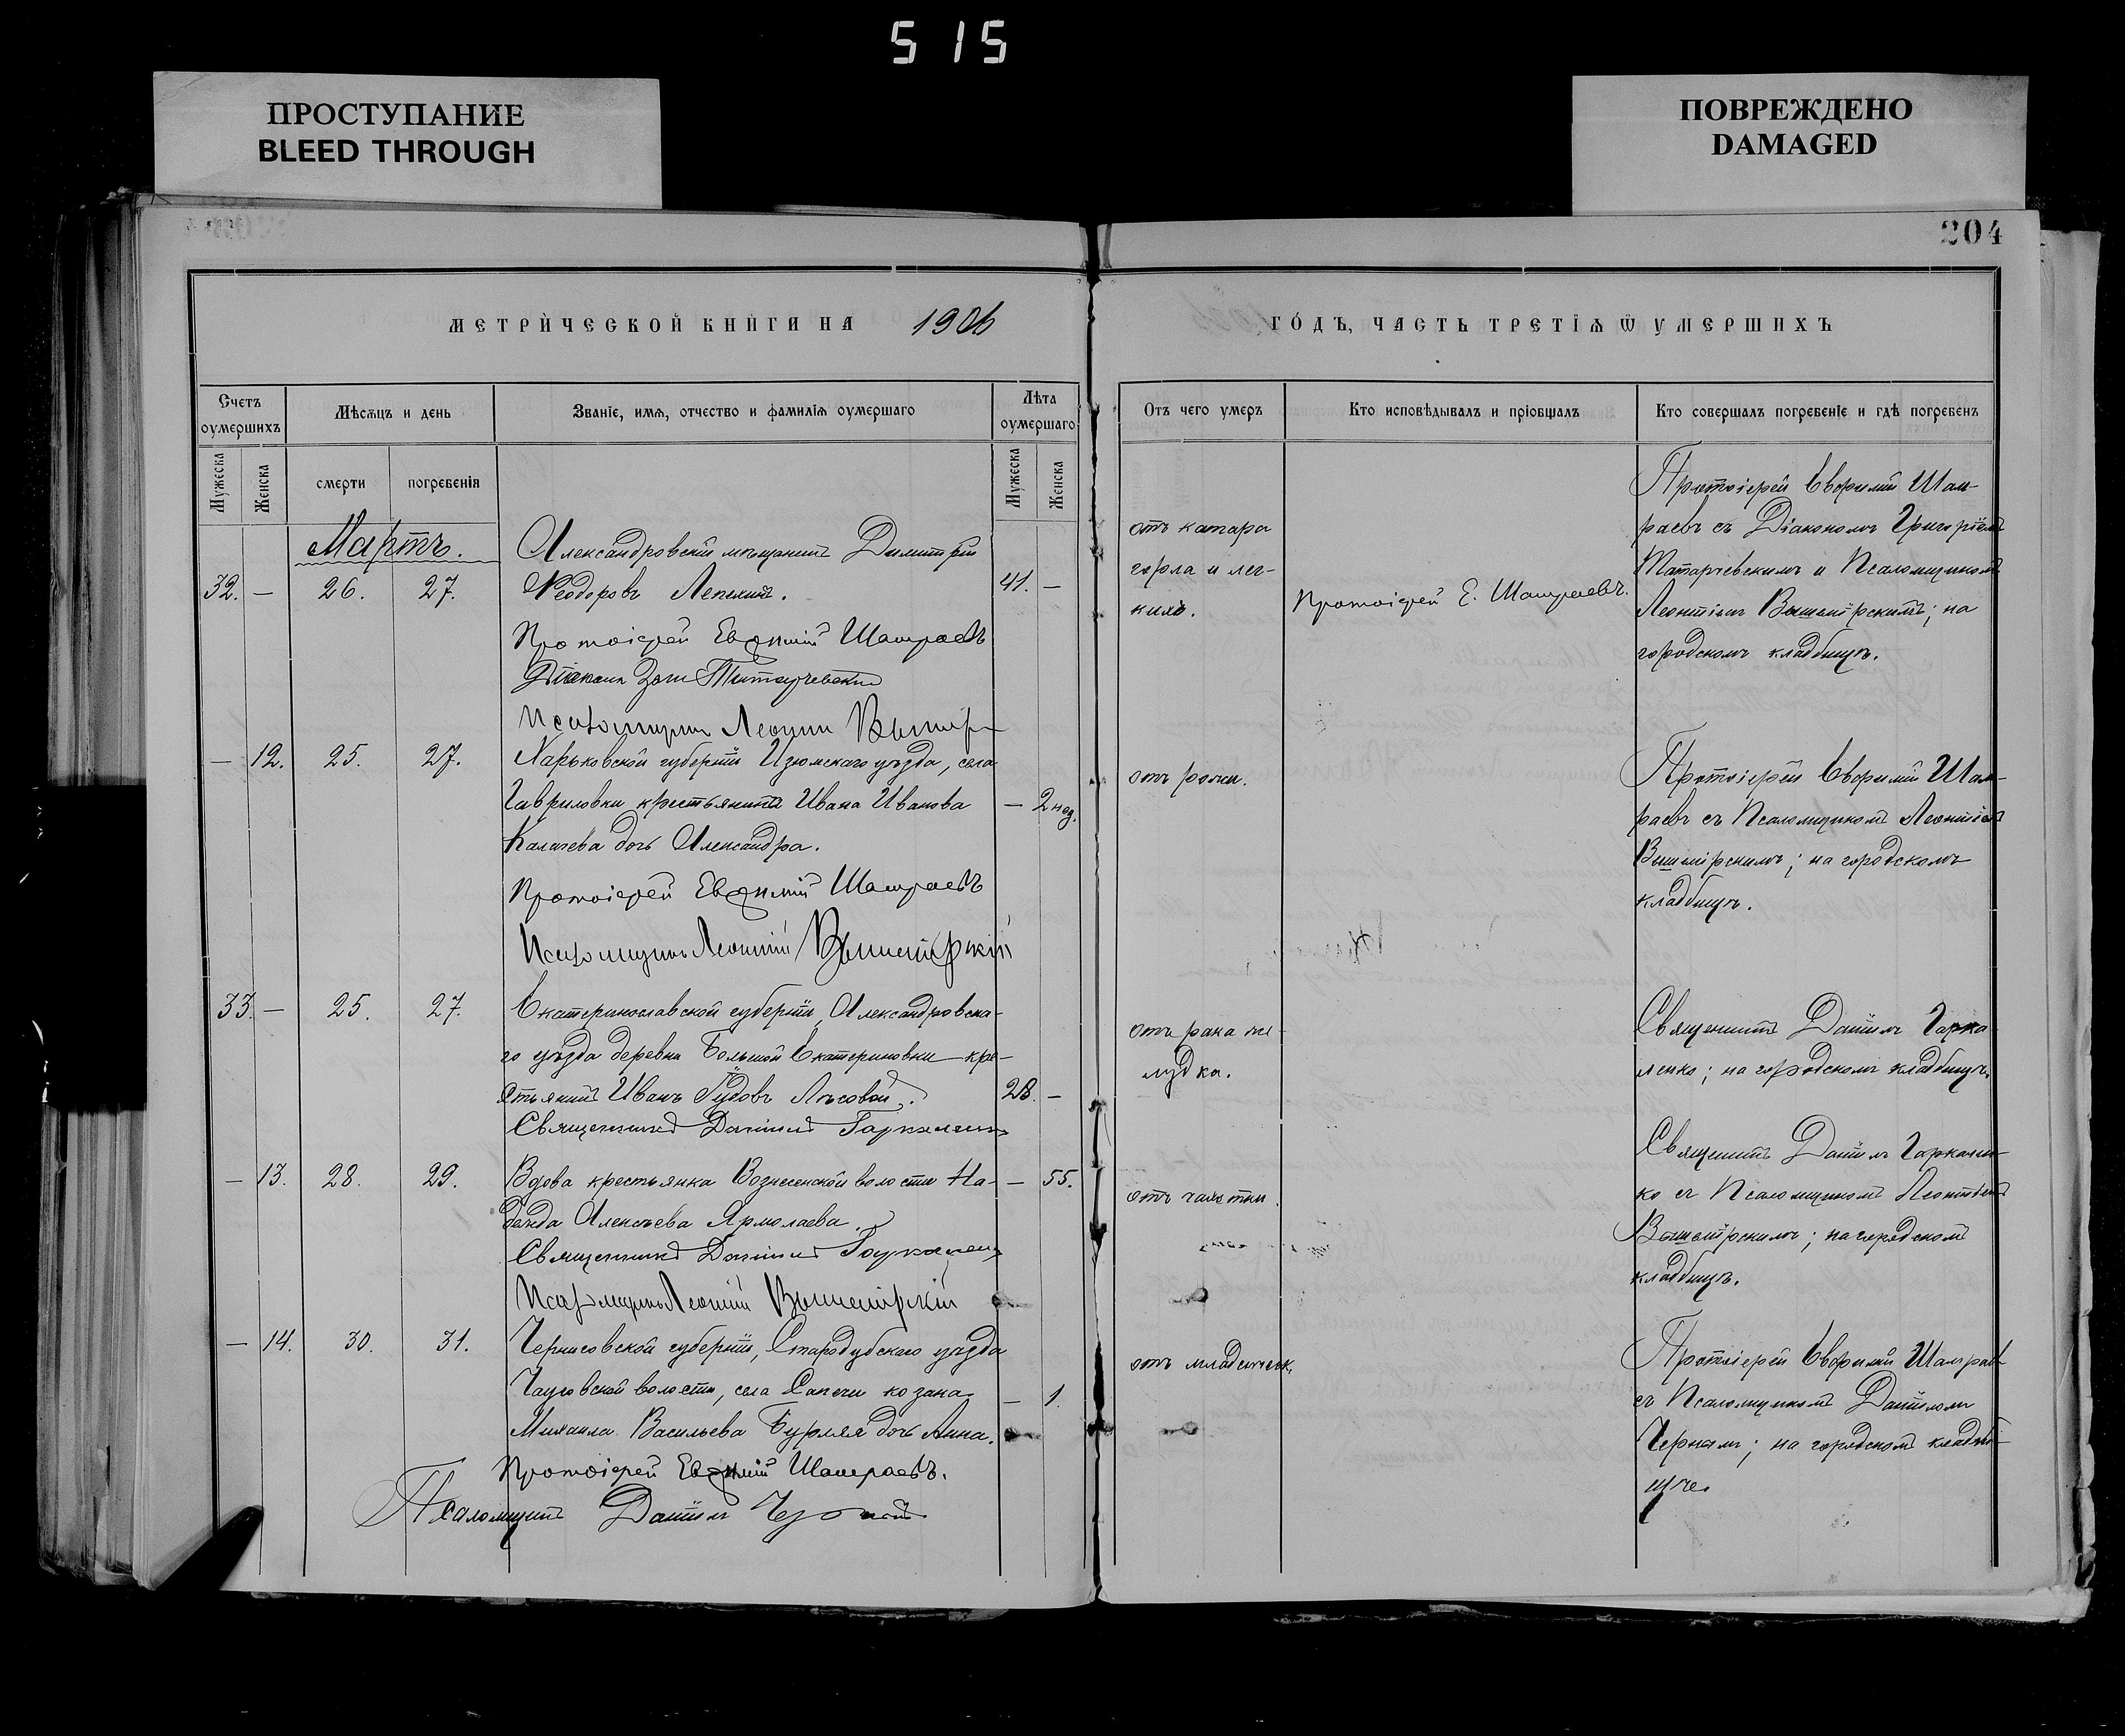 515
ПРОСТУПАНИЕ
BLEED THROUGH
ПОВРЕЖДЕНО
DAMAGED
204
МЕТРИЧЕСКОЙ КНИГИ НА 1906
ГОДЪ, ЧАСТЬ ТРЕТІЯ Ѿ УМЕРШИХЪ
Счетъ оумершихъ
Мѣсяцъ и день
Званіе, имя, отчество и фамилія оумершаго
Лѣта оумершаго
Отъ чего умеръ
Кто исповѣдывалъ и пріобщалъ
Кто совершалъ погребеніе и гдѣ погребенъ
Мужеска
Женска
смерти
погребенія
Мужеска
Женска
Мартъ.
32. — 26. 27.
Александровскій мѣщанинъ Димитрій
Ѳеодоровъ Лепехинъ.
41. —
Протоіерей Евѳимій Шамраевъ
Діаконъ
Псаломщикъ Леонтій
отъ катара
горла и лег-
кихъ.
Протоіерей Е. Шамраевъ.
Протоіерей Евфимій Шам-
раевъ съ Діакономъ Григоріемъ
Татарчевскимъ и Псаломщикомъ
Леонтіемъ Вышемірскимъ; на
городскомъ кладбищѣ.
— 12. 25. 27.
Харьковской губерніи Изюмскаго уѣзда, села
Гавриловки крестьянина Ивана Иванова
Калачева дочь Александра.
— 2 нед.
Протоіерей Евѳимій Шамраевъ
Псаломщикъ Леонтій Вышемірскій
отъ рожи.
Протоіерей Евфимій Шам-
раевъ съ Псаломщикомъ Леонтіемъ
Вышемірскимъ; на городскомъ
кладбищѣ.
33. — 25. 27.
Екатеринославской губерніи, Александровска-
го уѣзда деревни Большой Екатериновки кре-
стьянинъ Иванъ Лѣсовой.
28. —
Священникъ Даніилъ Гаркаленко
отъ рака же-
лудка.
Священникъ Даніилъ Гарка-
ленко; на городскомъ кладбищѣ.
— 13. 28. 29.
Вдова крестьянка Вознесенской волости На-
дежда Алексѣева Ярмолаева.
— 55.
Священникъ Даніилъ Гаркаленко
Псаломщикъ Леонтій Вышемірскій
отъ чахотки.
Священникъ Даніилъ Гаркален-
ко съ Псаломщикомъ Леонтіемъ
Вышемірскимъ; на городскомъ
кладбищѣ.
— 14. 30. 31.
Черниговской губерніи, Стародубскаго уѣзда
волости, села козака
Михаила Васильева Бурляя дочь Анна.
— 1.
Протоіерей Евѳимій Шамраевъ.
Псаломщикъ Даніилъ Черный
отъ младенческ.
Протоіерей Евфимій Шамраевъ
съ Псаломщикомъ Даніиломъ
Чернымъ; на городскомъ кладби-
щѣ.